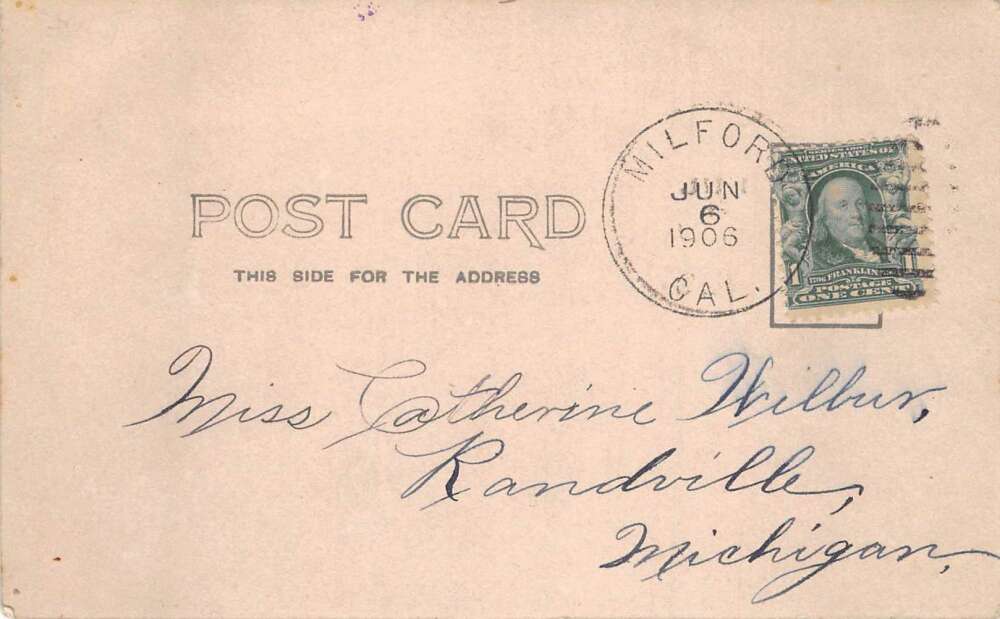 POST CARD
THIS SIDE FOR THE ADDRESS
MILFORD
JUN
6
1906
CAL.
UNITED STATES OF
AMERICA
1 1
FRANKLIN
POSTAGE
ONE CENT
Miss Catherine Wilbur,
Randville,
Michigan,